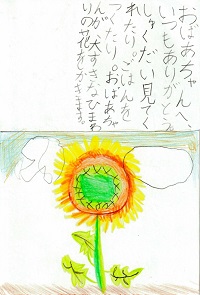 おばあちゃんへ、
いつもありがとう
しゅくだい見てく
れたり。ごはんを
つくたり。おばあちゃ
んが大すきなひまわ
りの花をかきます。